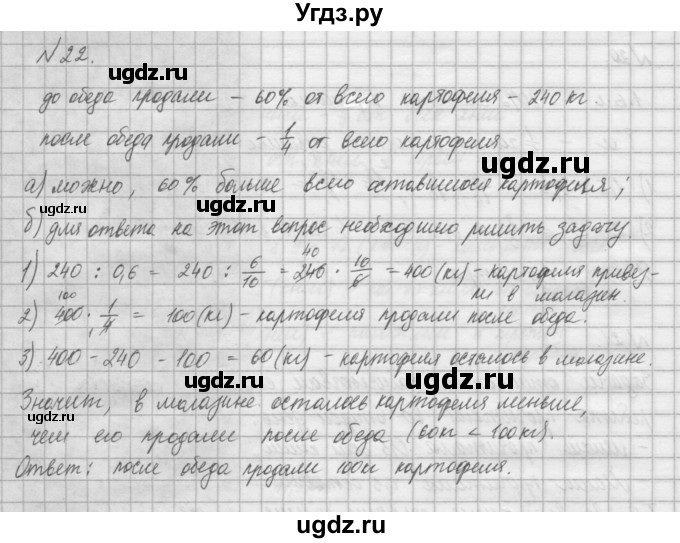 Угдз.ру
№22.
ugdz.ru
до обеда продали – 60% от всего картофеля – 240 кг
ugdz.ru
после обеда продали – 1/4 от всего картофеля
а) можно, 60% больше всего оставшегося картофеля;
ugdz.ru ugdz.ru
б) для ответа на этот вопрос необходимо решить задачу.
1) 240 : 0,6 = 240 : 6/10 = 240 40 · 10/6 = 400 (кг) – картофеля привез-
ли в магазин.
2) 400 100 · 1/4 1 = 100 (кг) – картофеля продали после обеда.
ugdz.ru
3) 400 – 240 – 100 = 60 (кг) – картофеля осталось в магазине.
ugdz.ru
Значит, в магазине осталось картофеля меньше,
чем его продали после обеда (60кг < 100кг).
ugdz.ru
Ответ: после обеда продали 100кг картофеля.
ugdz.ru
ugdz.ru